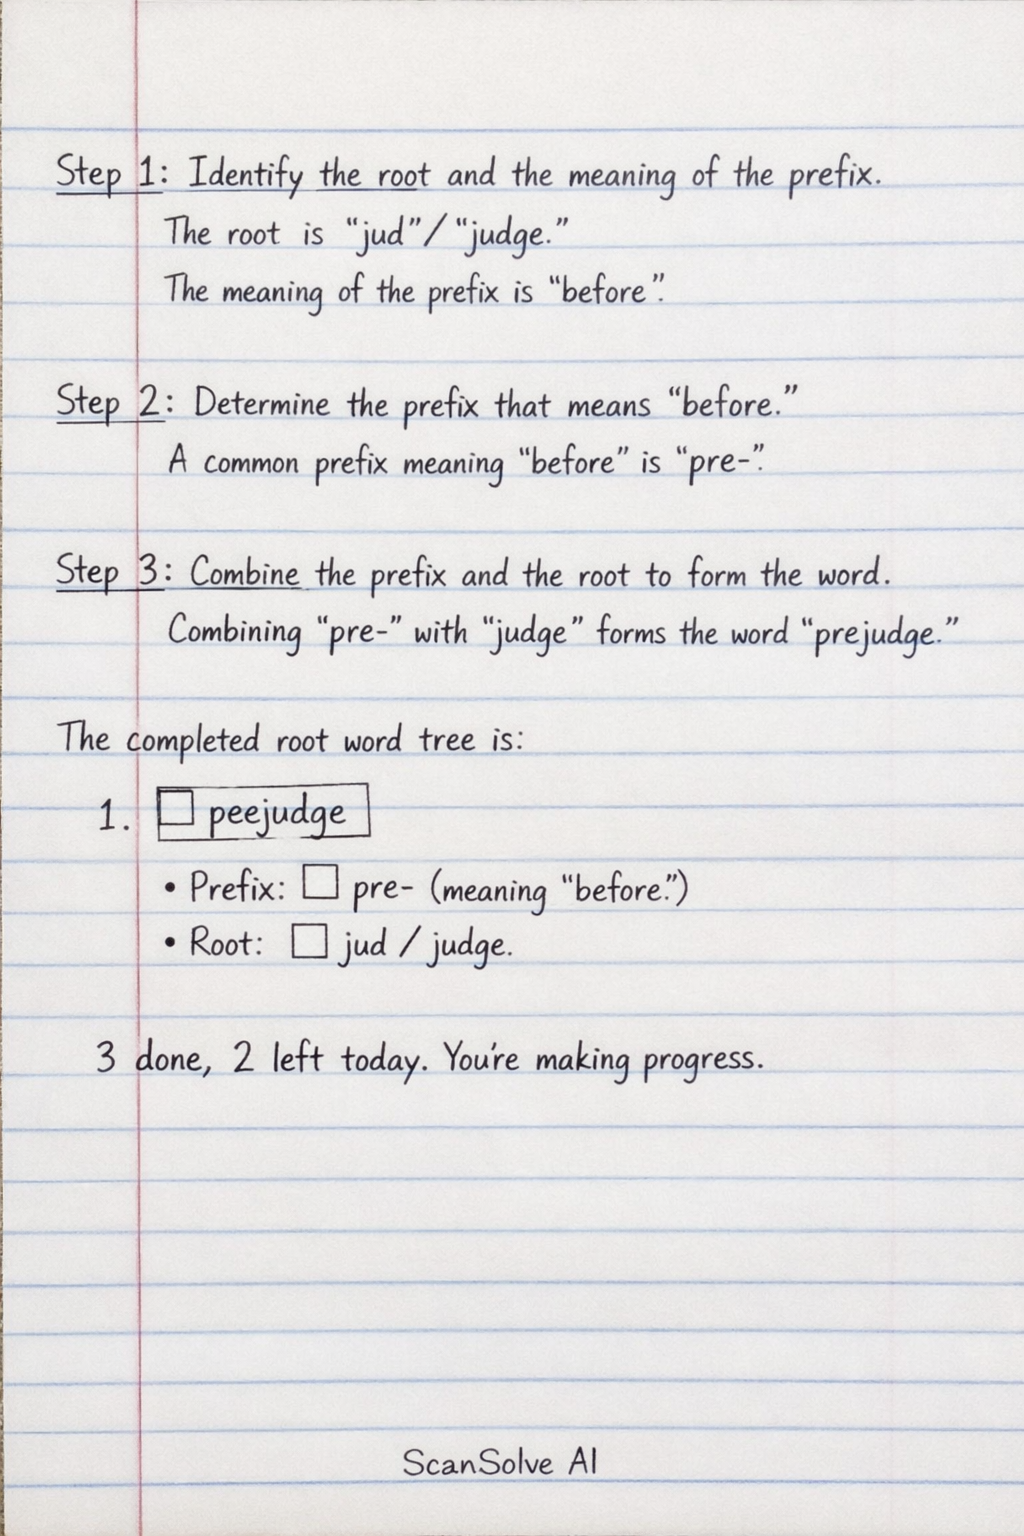 Step 1: Identify the root and the meaning of the prefix.
The root is “jud”/ “judge.”
The meaning of the prefix is “before”.
Step 2: Determine the prefix that means “before.”
A common prefix meaning “before” is “pre-”.
Step 3: Combine the prefix and the root to form the word.
Combining “pre-” with “judge” forms the word “prejudge.”
The completed root word tree is:
1. □ peejudge
• Prefix: □ pre- (meaning “before.”)
• Root: □ jud / judge.
3 done, 2 left today. You're making progress.
ScanSolve AI